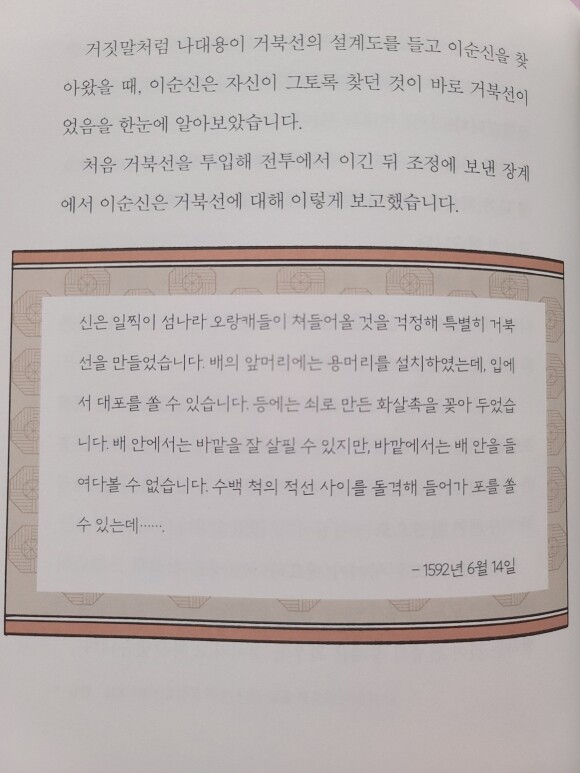 거짓말처럼 나대용이 거북선의 설계도를 들고 이순신을 찾
아왔을 때, 이순신은 자신이 그토록 찾던 것이 바로 거북선이
었음을 한눈에 알아보았습니다.
처음 거북선을 투입해 전투에서 이긴 뒤 조정에 보낸 장계
에서 이순신은 거북선에 대해 이렇게 보고했습니다.
신은 일찍이 섬나라 오랑캐들이 쳐들어올 것을 걱정해 특별히 거북
선을 만들었습니다. 배의 앞머리에는 용머리를 설치하였는데, 입에
서 대포를 쏠 수 있습니다. 등에는 쇠로 만든 화살촉을 꽂아 두었습
니다. 배 안에서는 바깥을 잘 살필 수 있지만, 바깥에서는 배 안을 들
여다볼 수 없습니다. 수백 척의 적선 사이를 돌격해 들어가 포를 쏠
수 있는데…….
– 1592년 6월 14일